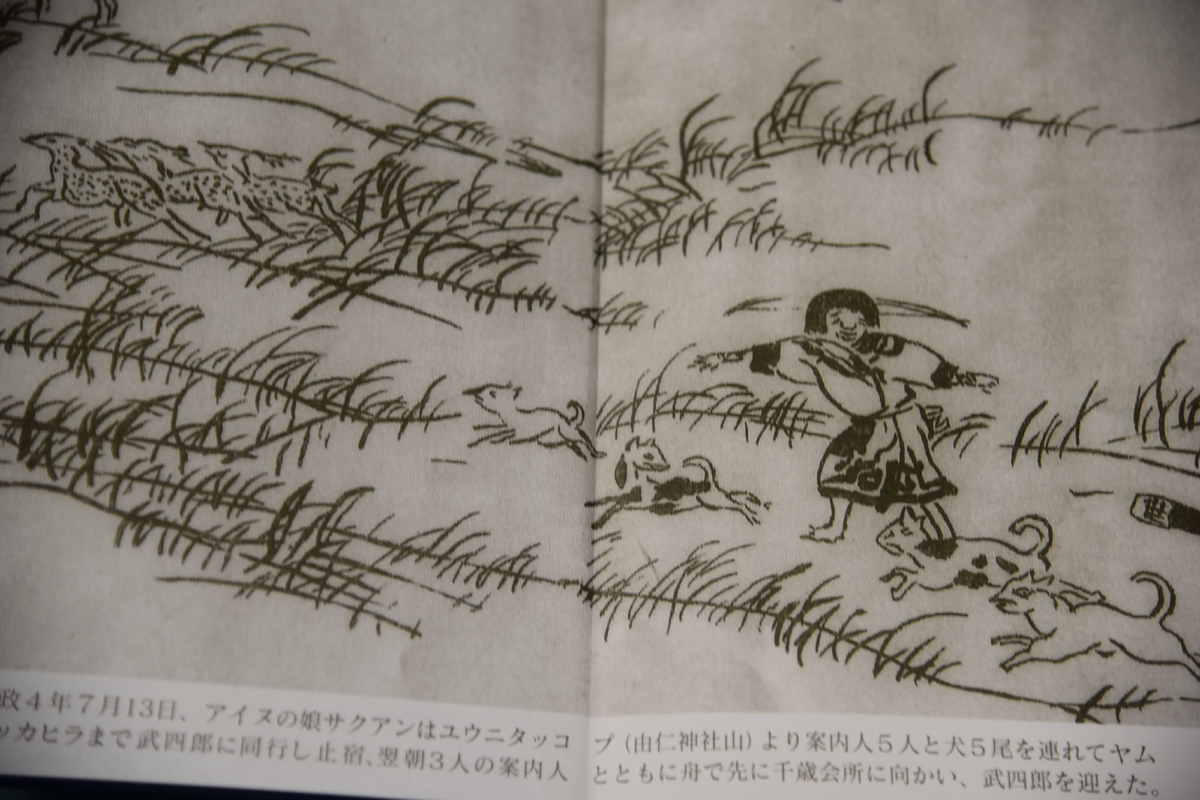 政4年7月13日、アイヌの娘サクアンはユウニタッコプ（由仁神社山）より案内人5人と犬5尾を連れてヤム
ッカヒラまで武四郎に同行し止宿、翌朝3人の案内人とともに舟で先に千歳会所に向かい、武四郎を迎えた。